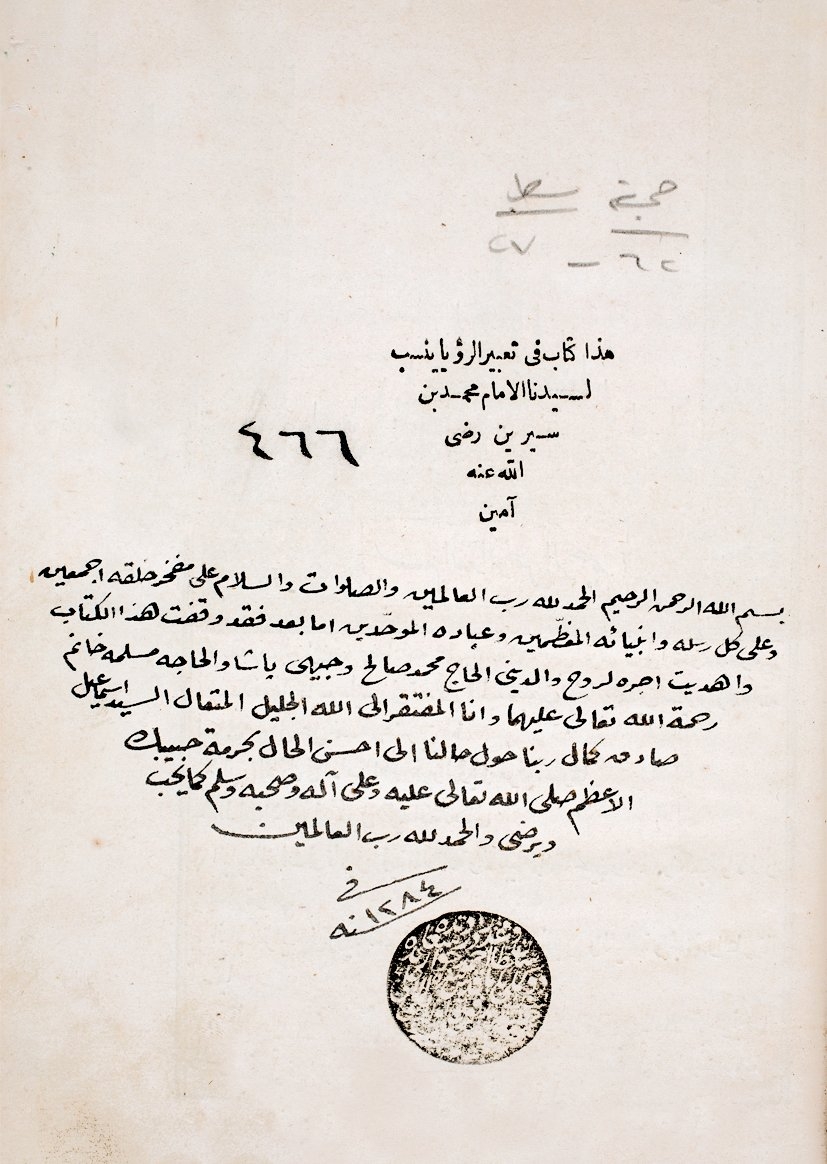 ٦٢ – ٢٧
هذا كتاب فى تعبير الرؤيا ينسب
لسيدنا الامام محمد بن
سيرين رضى
الله عنه
آمين
٤٦٦
بسم الله الرحمن الرحيم الحمد لله رب العالمين والصلوات والسلام على مفخر خلقه اجمعين
وعلى كل رسله وانبيائه المفظّمين وعباده الموحّدين اما بعد فقد وقفت هذا الكتاب
واهديت اجره لروح والدينى الحاج محمد صالح وجيهى پاشا والحاجه مسلمه خانم
رحمة الله تعالى عليهما وانا المفتقر الى الله الجليل المتعال السيد اسماعيل
صادق كمال ربنا حول حالنا الى احسن الحال بحرمة حبيبك
الاعظم صلى الله تعالى عليه وعلى آله وصحبه وسلم كما يحب
ويرضى والحمد لله رب العالمين
فى
١٢٨٤ نه